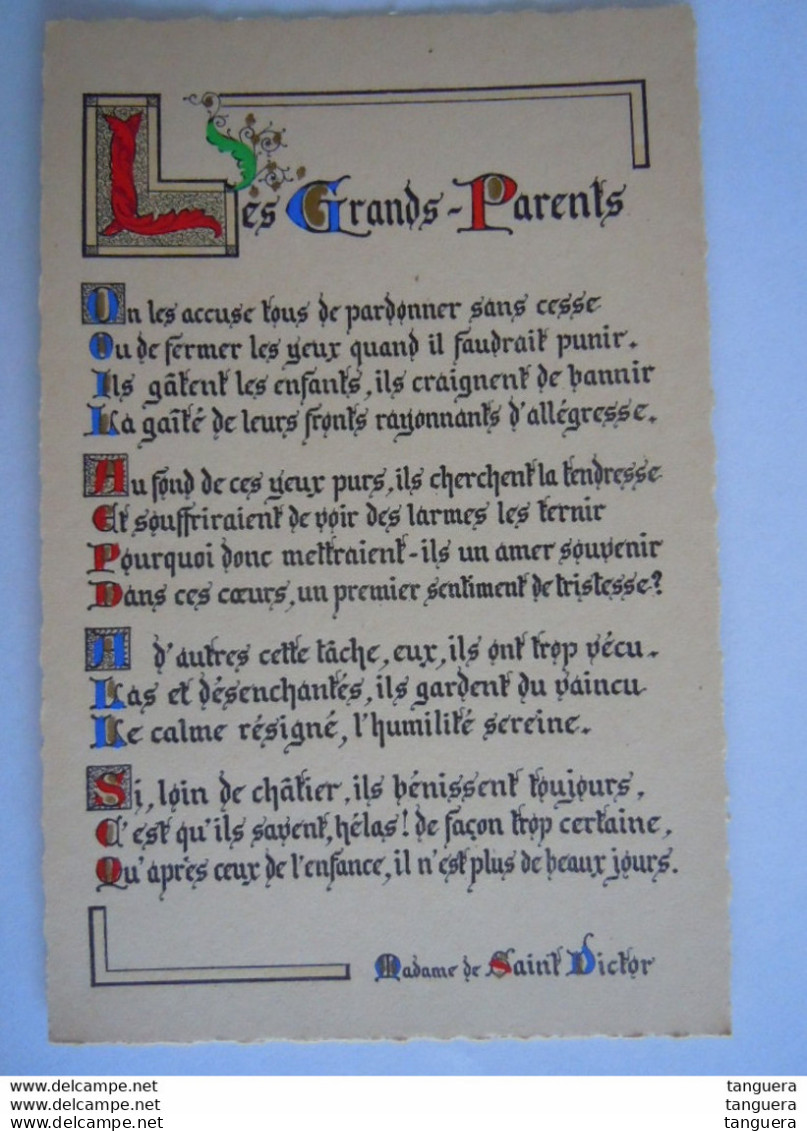 Les Grands-Parents
On les accuse tous de pardonner sans cesse
Ou de fermer les yeux quand il faudrait punir.
Ils gâtent les enfants, ils craignent de bannir
La gaîté de leurs fronts rayonnants d'allégresse.
Au fond de ces yeux purs, ils cherchent la tendresse
Et souffriraient de voir des larmes les ternir
Pourquoi donc mettraient-ils un amer souvenir
Dans ces cœurs, un premier sentiment de tristesse?
A d'autres cette tâche, eux, ils ont trop vécu.
Las et désenchantés, ils gardent du vaincu
Le calme résigné, l'humilité sereine.
Si, loin de châtier, ils bénissent toujours,
C'est qu'ils savent, hélas! de façon trop certaine,
Qu'après ceux de l'enfance, il n'est plus de beaux jours.
Madame de Saint Victor
www.delcampe.net tanguera
www.delcampe.net tanguera
www.delcampe.net tanguera